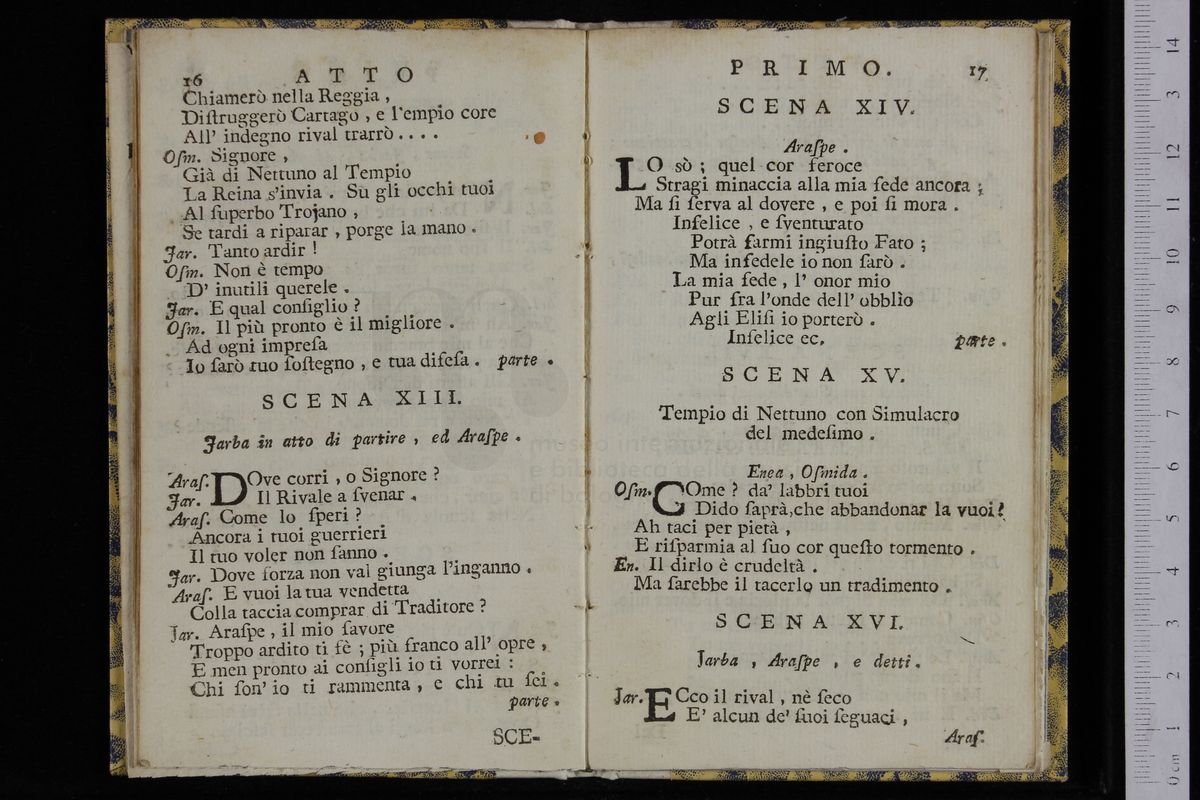 16 ATTO
Chiamerò nella Reggia ,
Diſtruggerò Cartago , e l'empio core
All' indegno rival trarrò . . . .
Oſm. Signore ,
Già di Nettuno al Tempio
La Reina s'invia . Su gli occhi tuoi
Al ſuperbo Trojano ,
Se tardi a riparar , porge la mano .
Jar. Tanto ardir !
Oſm. Non è tempo
D' inutili querele .
Jar. E qual conſiglio ?
Oſm. Il più pronto è il migliore .
Ad ogni impreſa
Io ſarò tuo ſoſtegno , e tua difeſa . parte .
SCENA XIII.
Jarba in atto di partire , ed Araſpe .
Araſ. DOve corri , o Signore ?
Jar. Il Rivale a ſvenar .
Araſ. Come lo ſperi ?
Ancora i tuoi guerrieri
Il tuo voler non ſanno .
Jar. Dove forza non val giunga l'inganno .
Araſ. E vuoi la tua vendetta
Colla taccia comprar di Traditore ?
Jar. Araſpe , il mio favore
Troppo ardito ti fè ; più franco all' opre ,
E men pronto ai conſigli io ti vorrei :
Chi ſon' io ti rammenta , e chi tu ſei .
parte .
SCE-
PRIMO. 17
SCENA XIV.
Araſpe .
LO sò ; quel cor feroce
Stragi minaccia alla mia fede ancora ;
Ma ſi ſerva al dovere , e poi ſi mora .
Infelice , e ſventurato
Potrà farmi ingiuſto Fato ;
Ma infedele io non ſarò .
La mia fede , l' onor mio
Pur fra l'onde dell' obblìo
Agli Eliſi io porterò .
Infelice ec. parte .
SCENA XV.
Tempio di Nettuno con Simulacro
del medeſimo .
Enea , Oſmida .
Oſm. COme ? da' labbri tuoi
Dido ſaprà,che abbandonar la vuoi?
Ah taci per pietà ,
E riſparmia al ſuo cor queſto tormento .
En. Il dirlo è crudeltà .
Ma ſarebbe il tacerlo un tradimento .
SCENA XVI.
Jarba , Araſpe , e detti .
Jar. ECco il rival , nè ſeco
E' alcun de' ſuoi ſeguaci ,
Araſ.